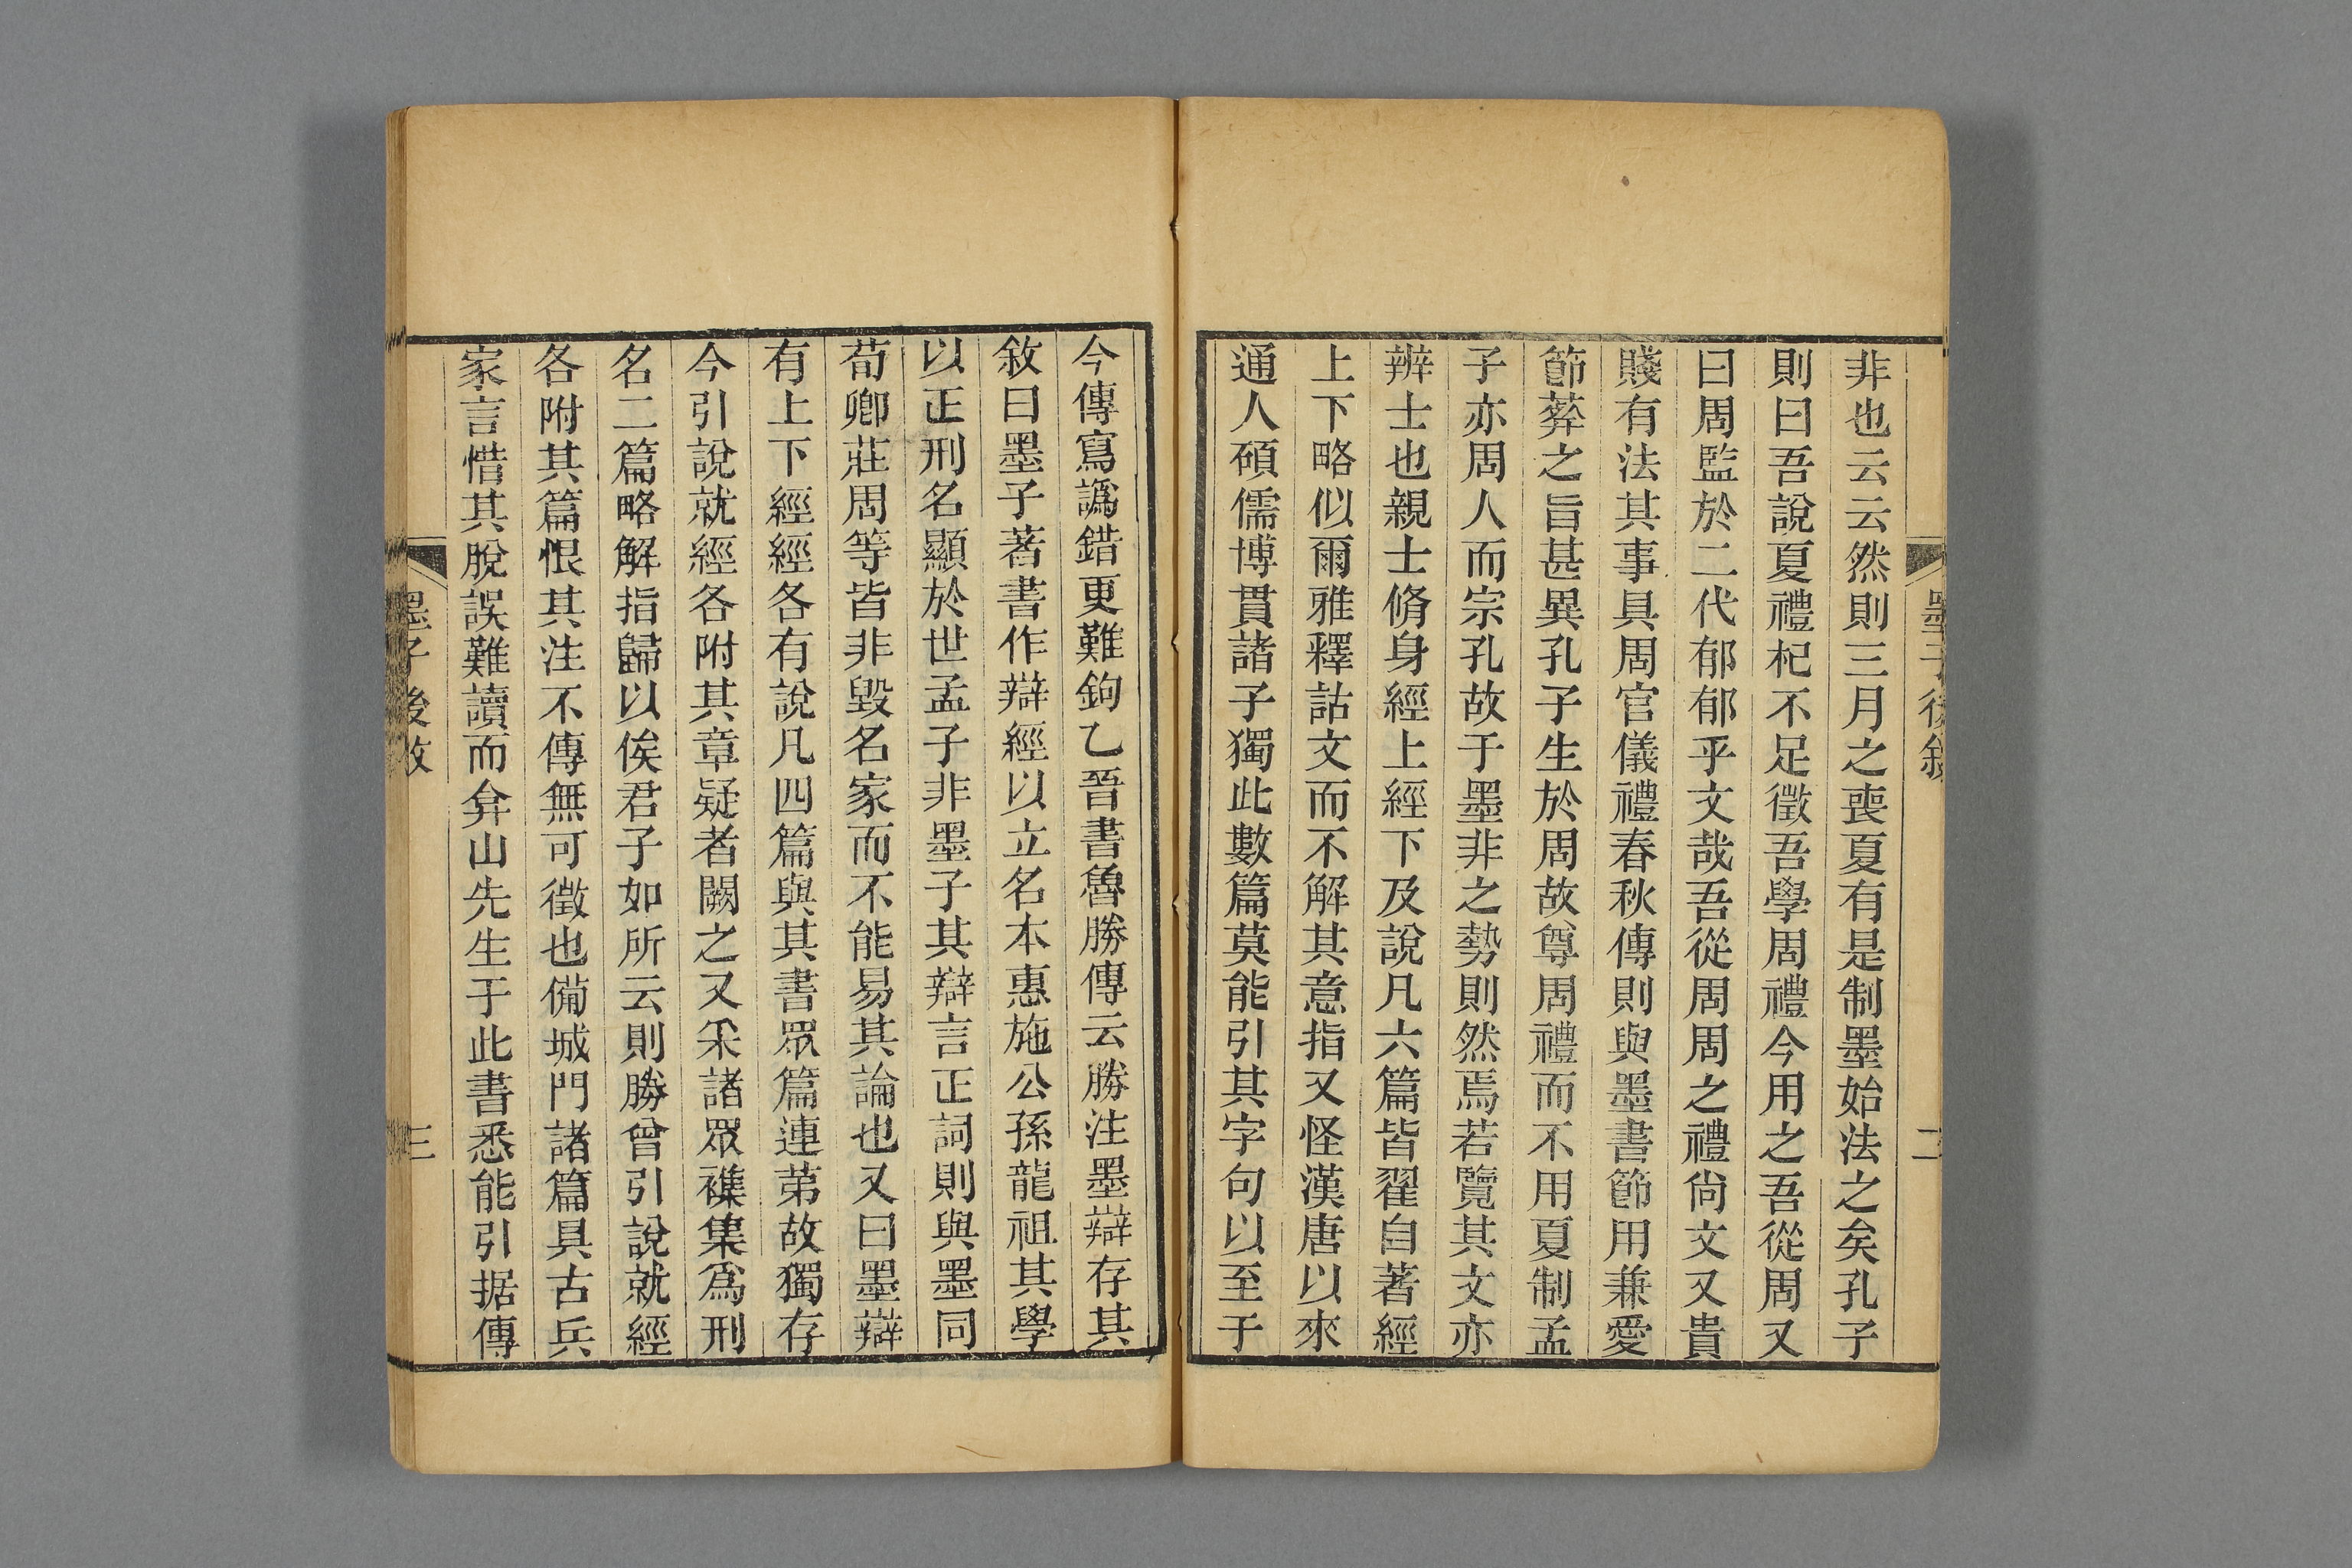 墨子後敘
二
非也云云然則三月之喪夏有是制墨始法之矣孔子
則曰吾說夏禮杞不足徵吾學周禮今用之吾從周又
曰周監於二代郁郁乎文哉吾從周周之禮尙文又貴
賤有法其事具周官儀禮春秋傳則與墨書節用兼愛
節葬之旨甚異孔子生於周故尊周禮而不用夏制孟
子亦周人而宗孔故于墨非之勢則然焉若覽其文亦
辨士也親士脩身經上經下及說凡六篇皆翟自著經
上下略似爾雅釋詁文而不解其意指又怪漢唐以來
通人碩儒博貫諸子獨此數篇莫能引其字句以至于
今傳寫譌錯更難鉤乙晉書魯勝傳云勝注墨辯存其
敘曰墨子著書作辯經以立名本惠施公孫龍祖其學
以正刑名顯於世孟子非墨子其辯言正詞則與墨同
荀卿莊周等皆非毀名家而不能易其論也又曰墨辯
有上下經經各有說凡四篇與其書眾篇連第故獨存
今引說就經各附其章疑者闕之又采諸眾襍集爲刑
名二篇略解指歸以俟君子如所云則勝曾引說就經
各附其篇恨其注不傳無可徵也備城門諸篇具古兵
家言惜其脫誤難讀而弇山先生于此書悉能引据傳
墨子後敘
三